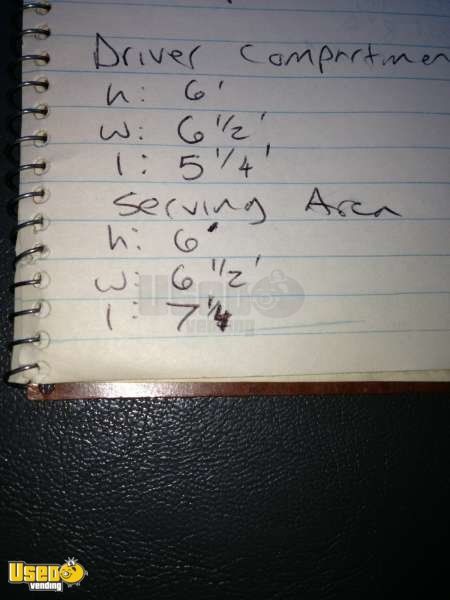 Driver Compartmen
h: 6'
w: 6 1/2'
l: 5 1/4'
Serving Area
h: 6'
w: 6 1/2'
l: 7 1/4
Used vending
Used
vending